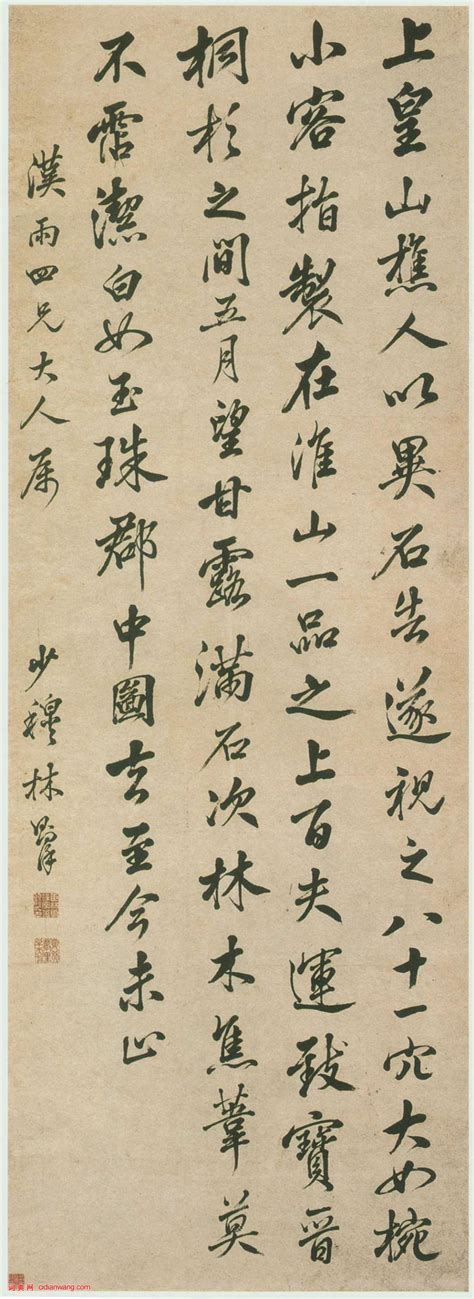 上皇山樵人以異石告遂視之八十一穴大如椀
小容指製在淮山一品之上百夫運致寶晉
桐杉之間五月望甘露滿石次林木焦葦莫
不霑潔白如玉珠郡中圖去至今未止
漢雨四兄大人屬
少穆林則徐
cidianwang.com